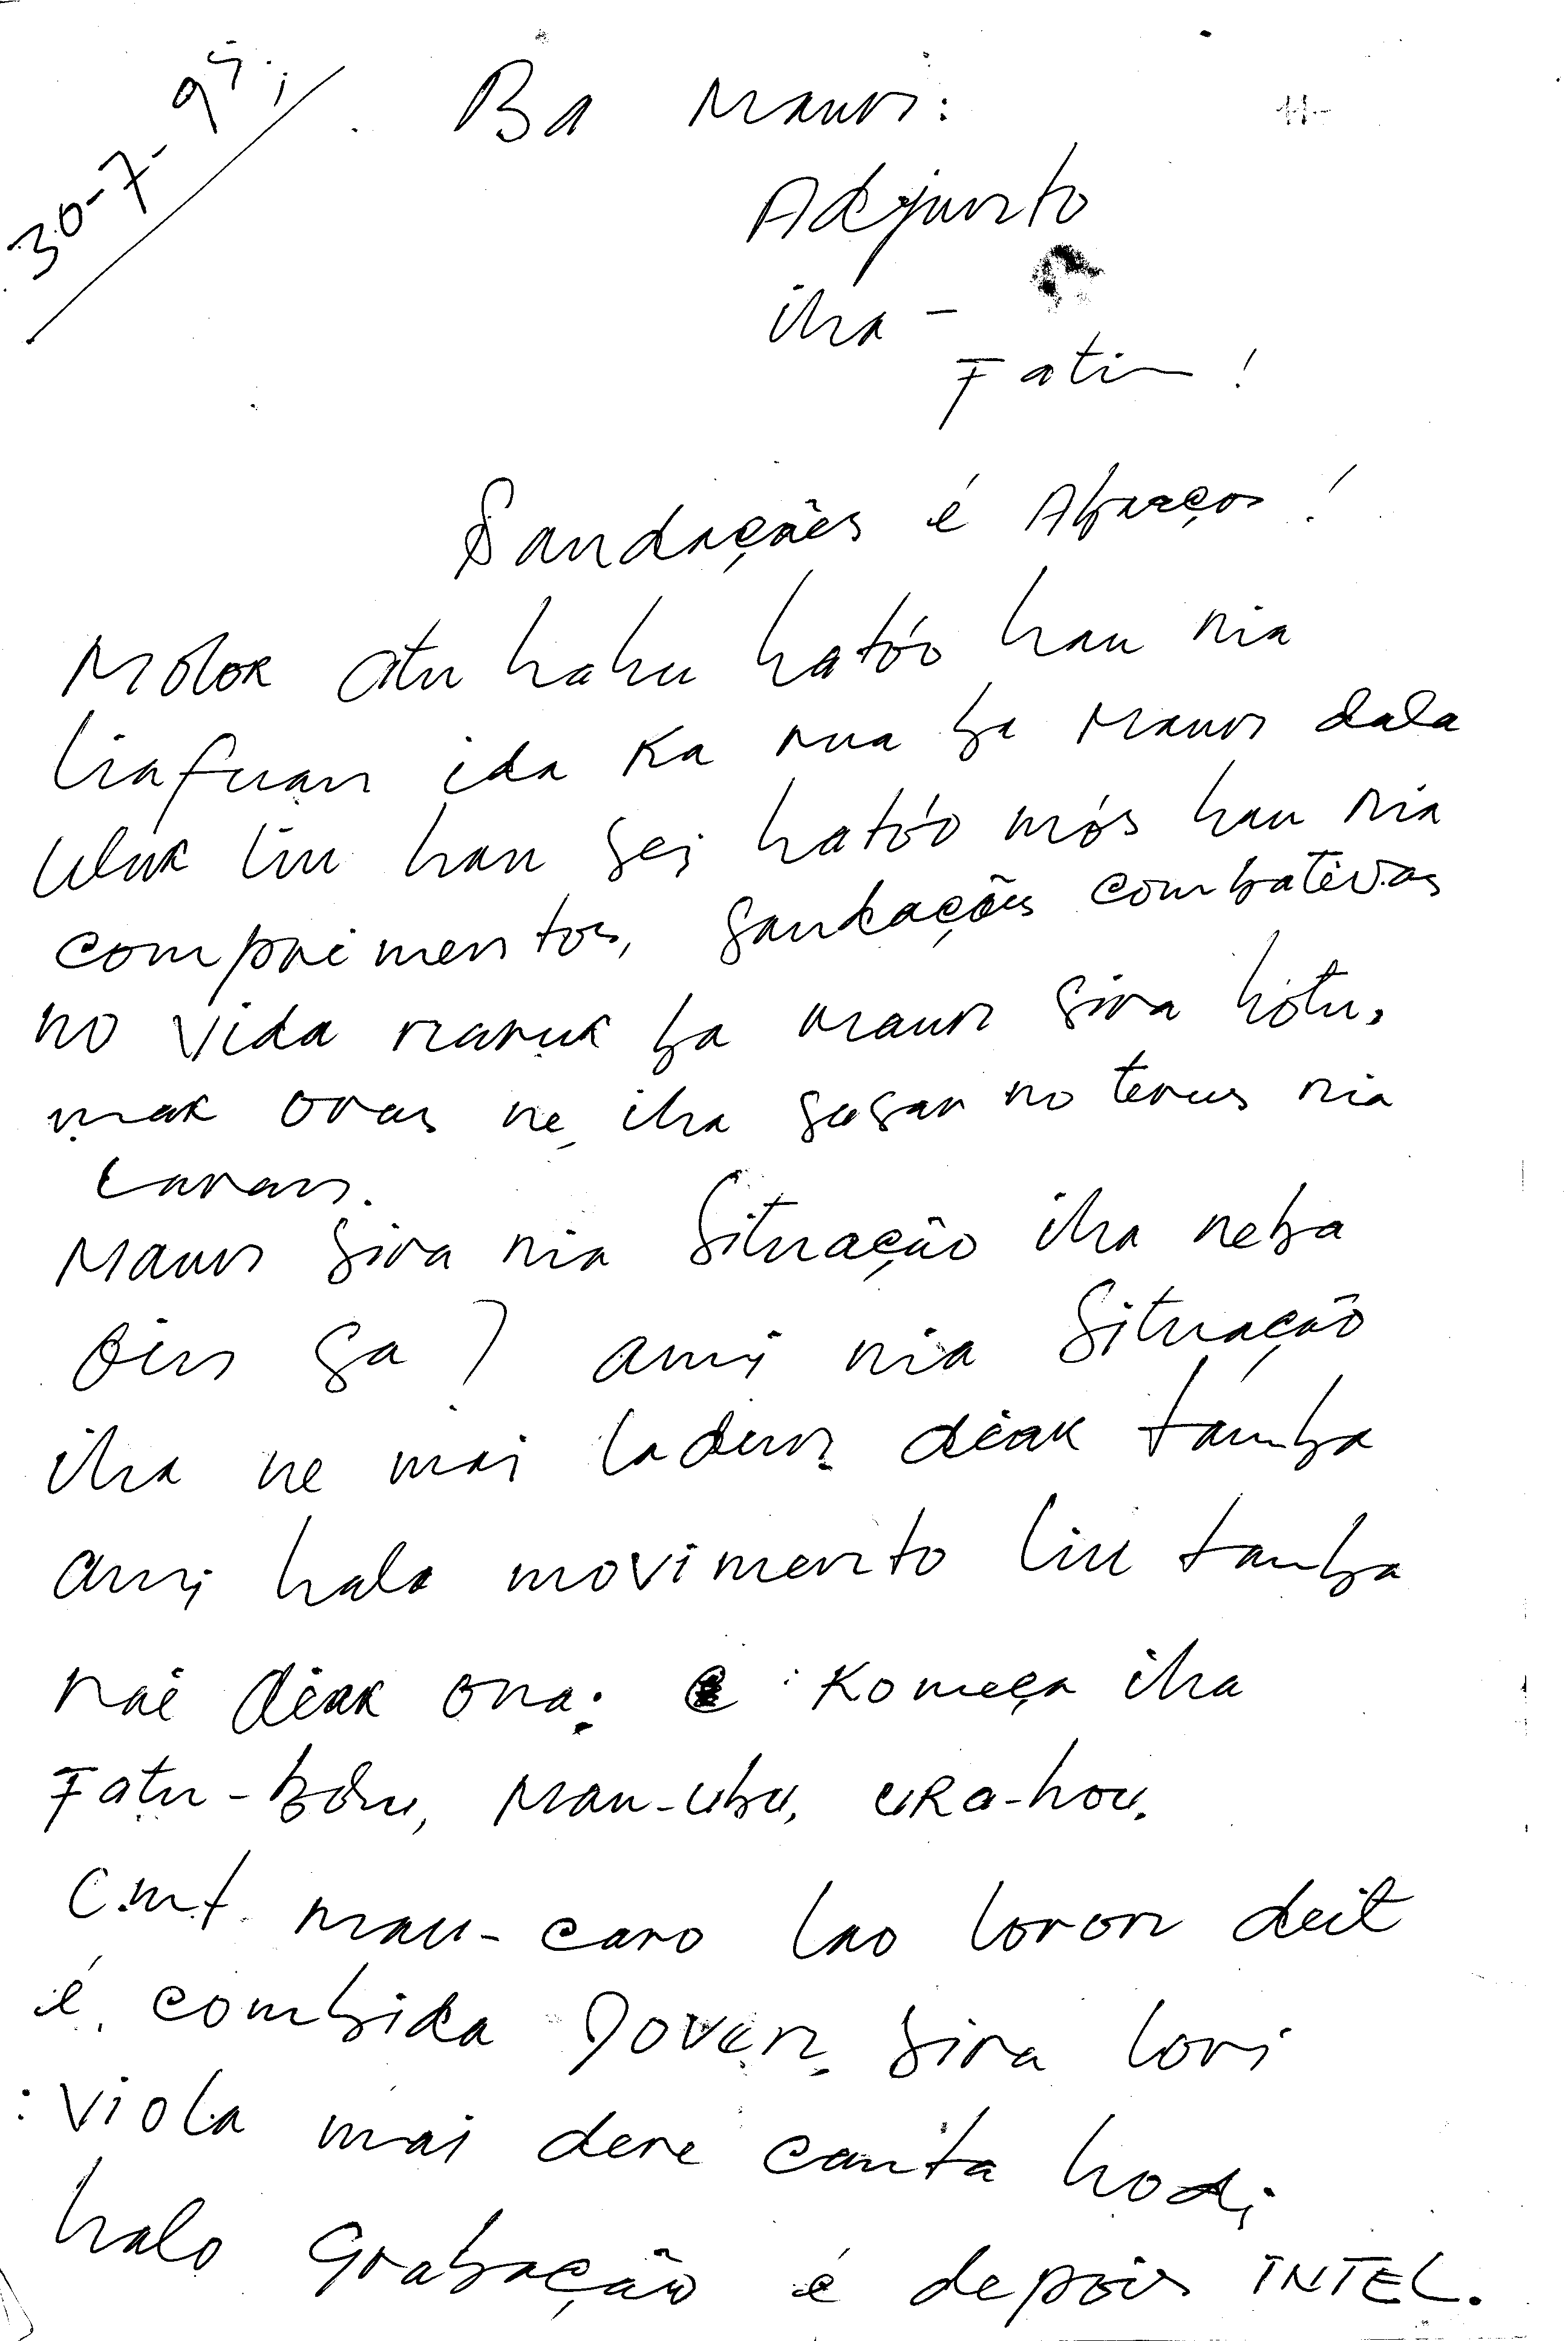 30-7-95
Ba Maun:
Adjunto
iha -
Fatin!
Saudações é Abraços!
Molok atu hahu ható'o hau nia
liafuan ida ka rua ba Maun dala
uluk liu hau sei ható'o mós hau nia
comprimentos, saudações combativas
no vida naruk ba maun sira hótu,
mak oras ne iha susar no terus nia
laran.
Maun sira nia Situação iha neba
óin sa? ami nia Situação
iha ne mai ladun diak tamba
ami halo movimento liu tamba
rai diak ona: Komeça iha
Fatu-bóru, Mau-ubu, URa-hou.
Cmt. Mau-caro lao loron deit
é combida Joven sira lori
viola mai dere canta hodi
halo Grabação é depois INTEL.